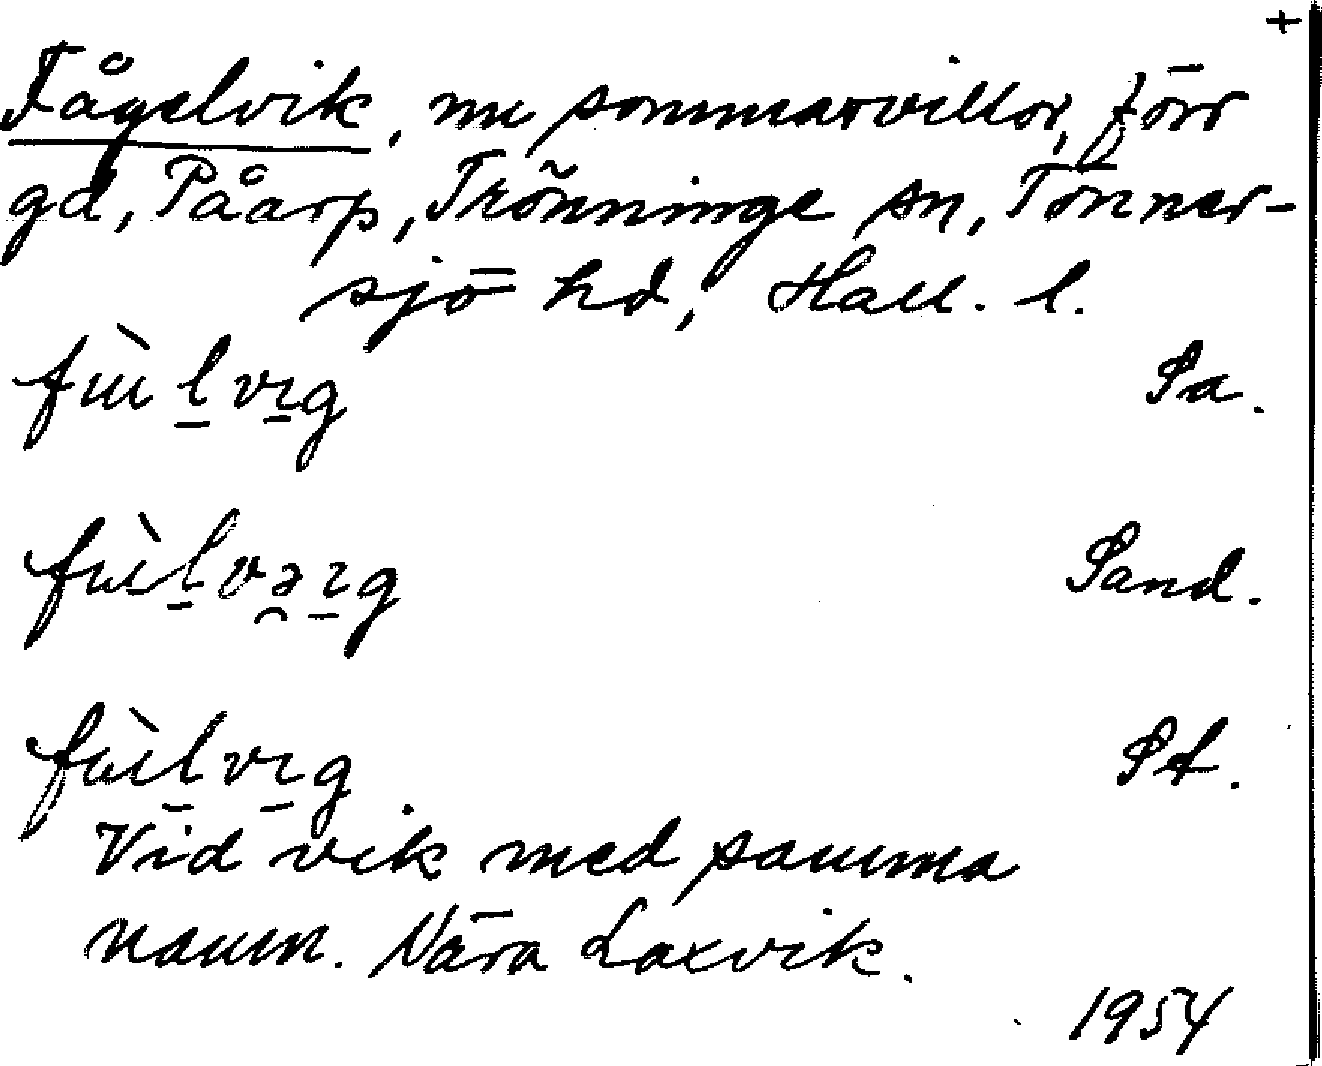 +
Fågelvik, nu sommarvillor, förr
gd, Påarp, Trönninge sn, Tönner-
sjö hd, Hall. l.
Sa.
Sand.
St.
Vid vik med samma
namn. Nära Laxvik.
1954